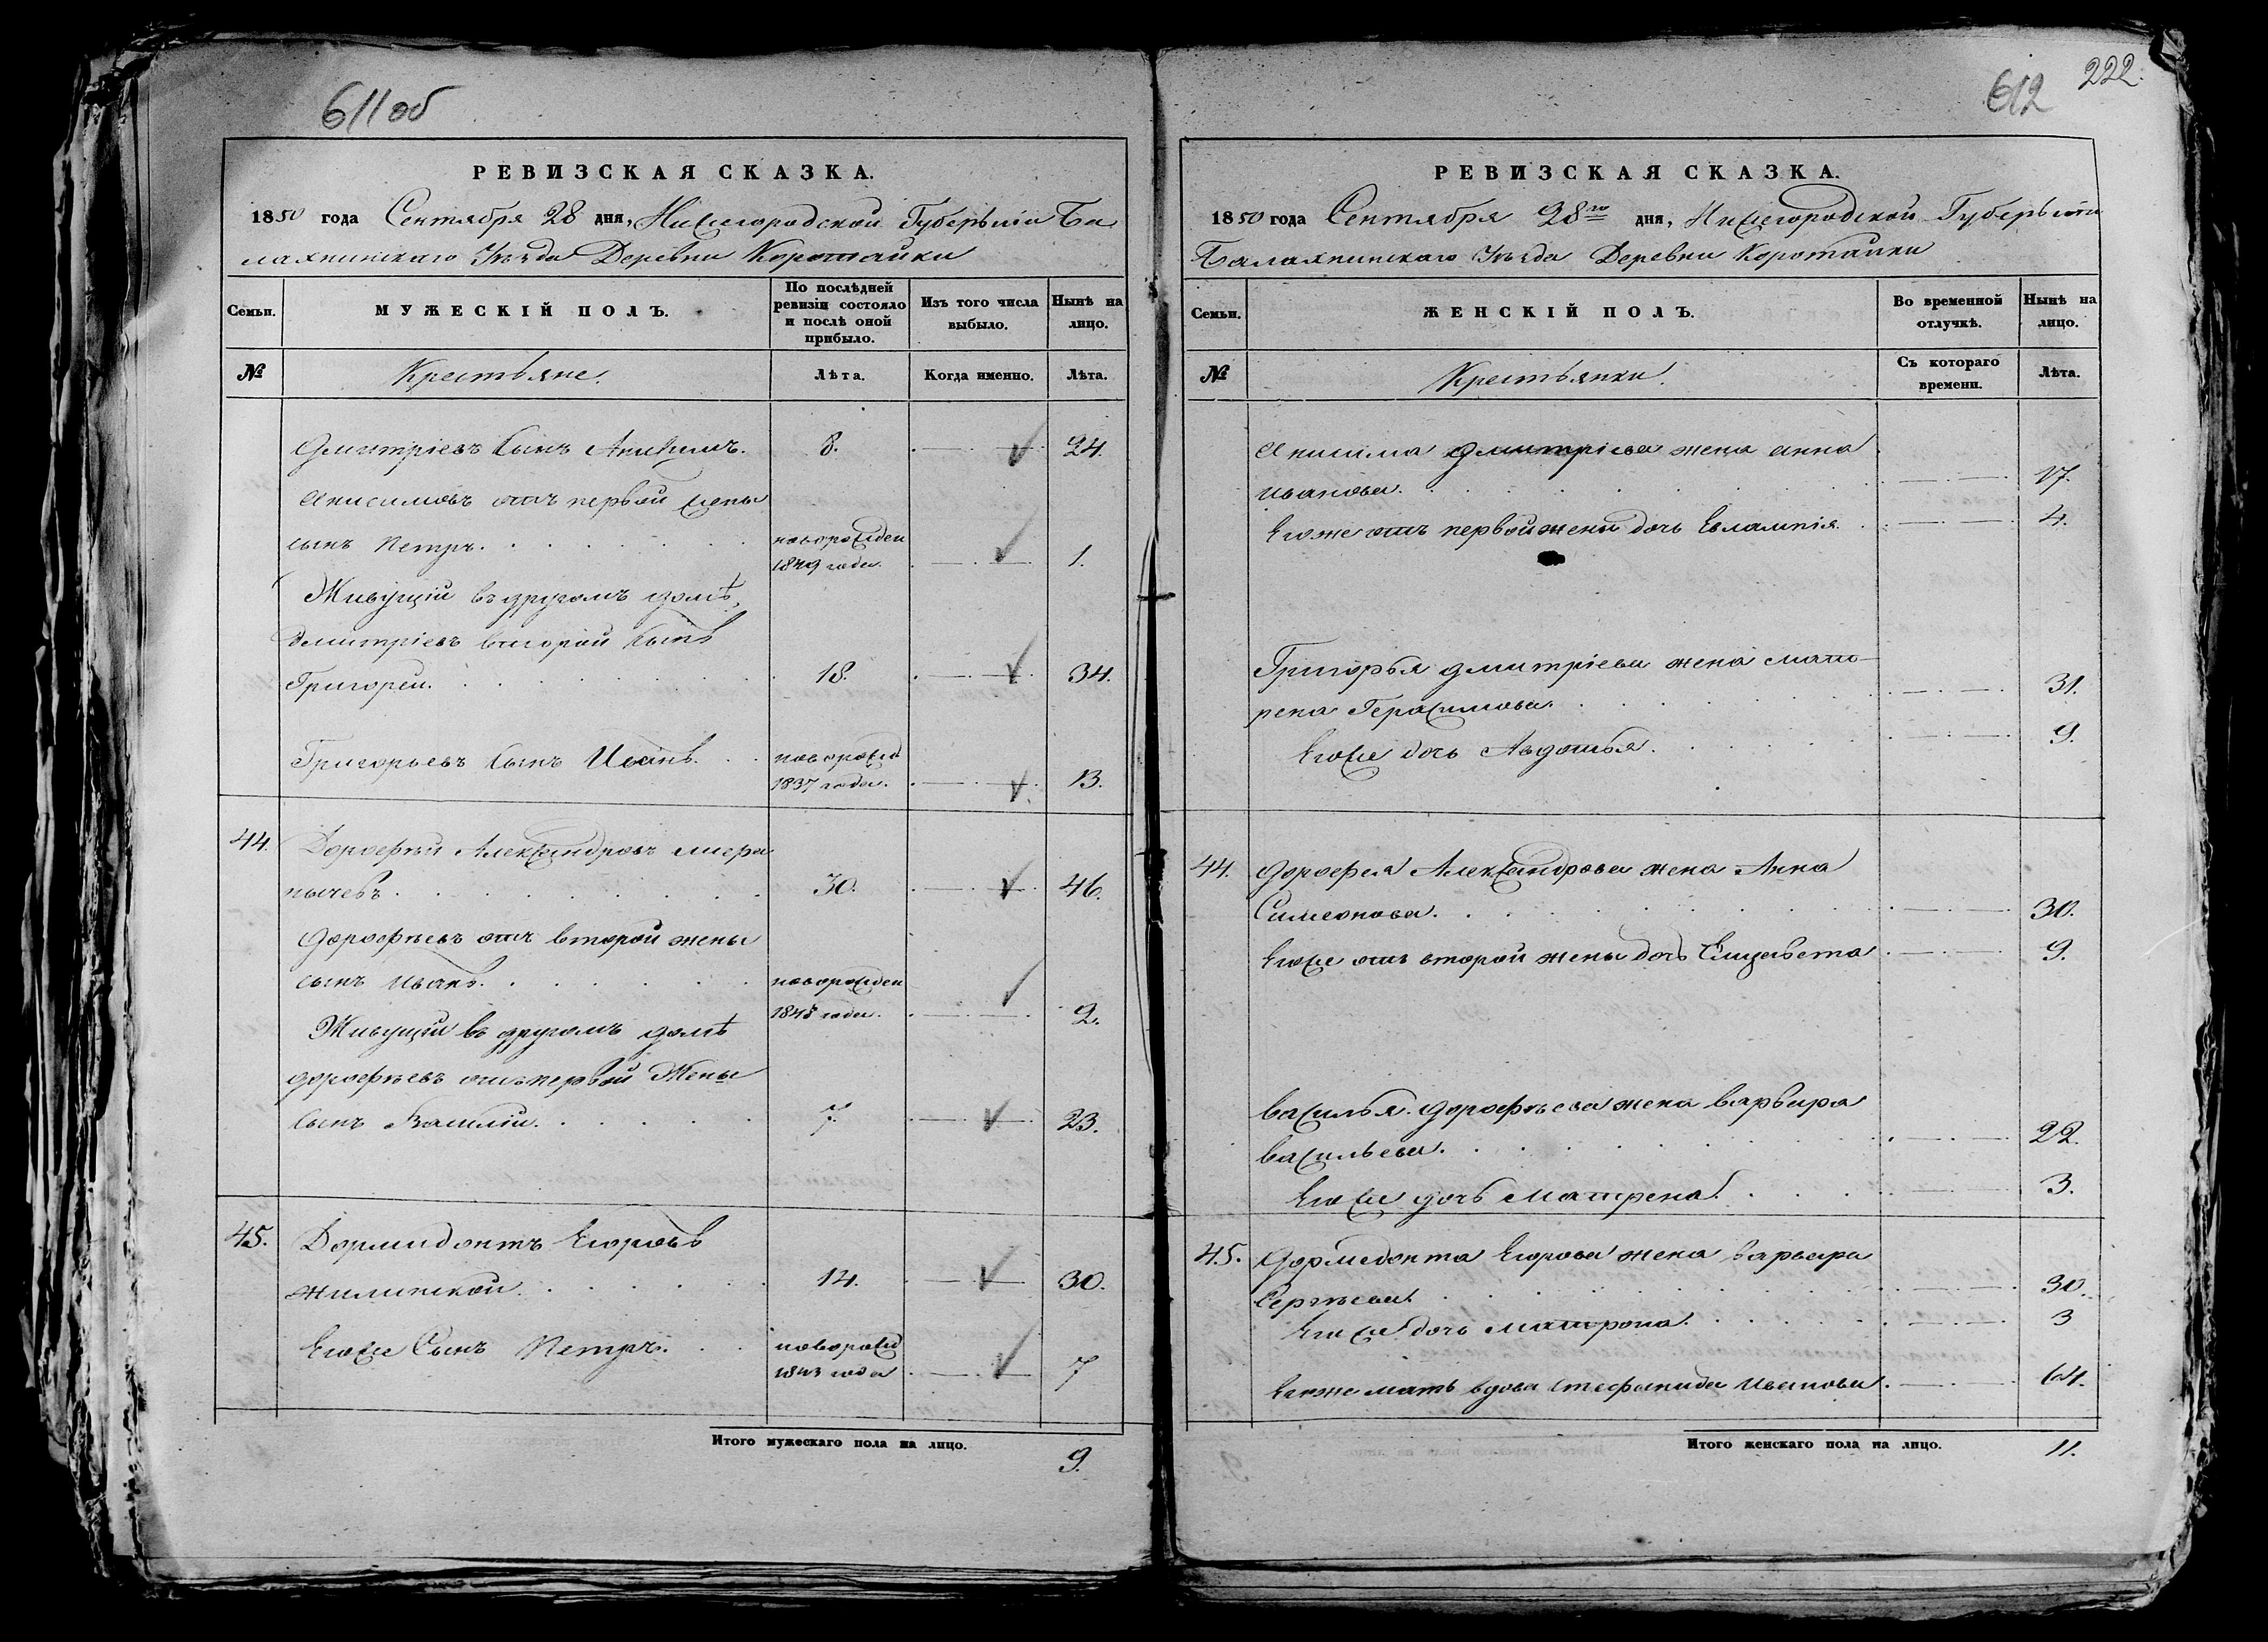 611 об
РЕВИЗСКАЯ СКАЗКА.
1850 года Сентября 28 дня, Нижегородской Губерніи Ба
лахнинскаго Уѣзда Деревни Коротайки
Семьи. МУЖЕСКІЙ ПОЛЪ. По послѣдней ревизіи состояло и послѣ оной прибыло. Изъ того числа выбыло. Нынѣ на лицо.
№ Крестьяне. Лѣта. Когда именно. Лѣта.
Дмитріевъ сынъ Анисимъ. 8. 24.
Анисимовъ отъ первой жены
сынъ Петръ. новорожден
1849 года. 1.
Живущій въ другомъ домѣ,
Дмитріевъ второй сынъ
Григорей. 18. 34.
Григорьевъ сынъ Иванъ. новорожд
1837 года. 13.
44. Дорофѣй Александровъ
30. 46.
Дорофѣевъ отъ второй жены
сынъ Иванъ. новорожден
1848 года. 2.
Живущій въ другомъ домѣ
Дорофѣевъ отъ первой Жены
сынъ Василій. 7. 23.
45. Дормидонтъ Егоровъ
Жилинской. 14. 30.
Егоже Сынъ Петръ. новорожд
1843 года 7
Итого мужескаго пола на лицо. 9.
612 222.
РЕВИЗСКАЯ СКАЗКА.
1850 года Сентября 28го дня, Нижегородской Губерніи
Балахнинскаго Уѣзда Деревни Коротайки
Семьи. ЖЕНСКІЙ ПОЛЪ. Во временной отлучкѣ. Нынѣ на лицо.
№ Крестьянки. Съ котораго времени. Лѣта.
Анисима Дмитріева жена Анна
Иванова. 17.
Егоже отъ первой жены дочь Евлампія. 4.
Григорья Дмитріева жена Мат-
рена Герасимова. 31.
Егоже дочь Авдотья. 9.
44. Дорофея Александрова жена Анна
Симеонова. 30.
Егоже отъ второй жены дочь Елизавета 9.
Василья Дорофѣева жена Варвара
Васильева. 22.
Егоже дочь Матрена. 3.
45. Дормедонта Егорова жена Варвара
Сергѣева. 30.
Егоже дочь Матрона. 3
Егоже мать вдова Стефанида Иванова. 64.
Итого женскаго пола на лицо. 11.